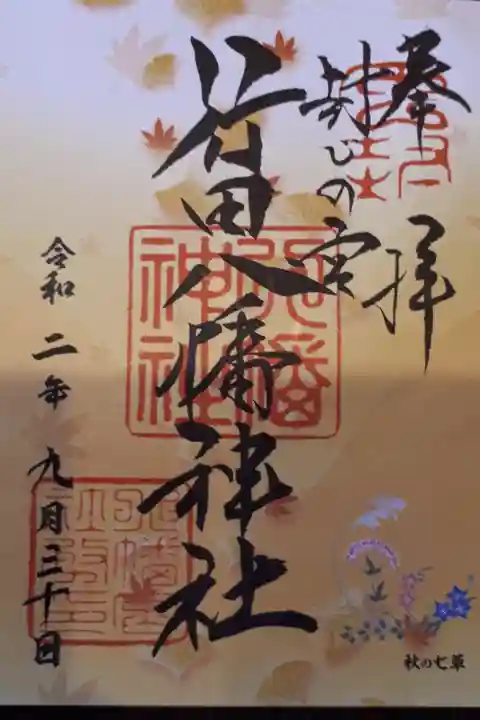 奉拝
封じの宮
行田八幡神社
令和二年九月三十日
秋の七草